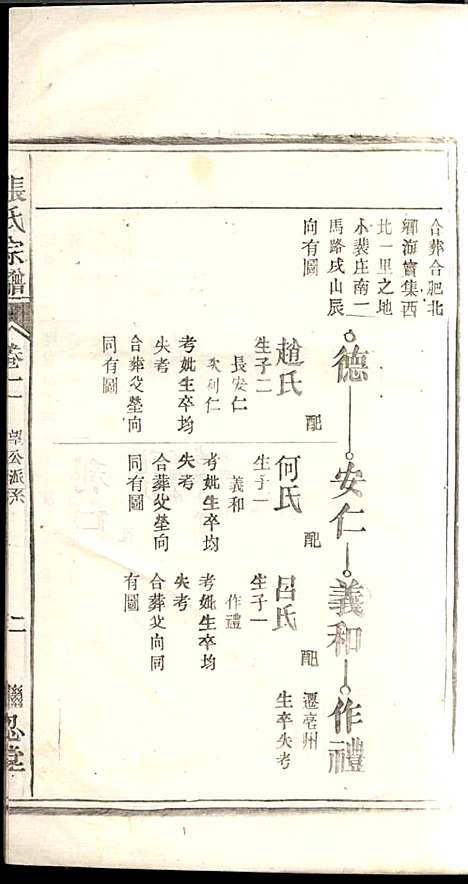 合葬合肥北
鄉海實集西
北一里之地
小裴庄南二
馬路戌山辰
向有圖
德
安仁
義和
作禮
配
趙氏
生子二
長安仁
次利仁
考妣生卒均
失考
合葬父塋向
同有圖
配
何氏
生子一
義和
考妣生卒均
失考
合葬父塋向
同有圖
遷亳州
生卒失考
配
呂氏
生子一
作禮
考妣生卒均
失考
合葬父向同
有圖
張氏宗譜
卷一
公派系
二
思堂